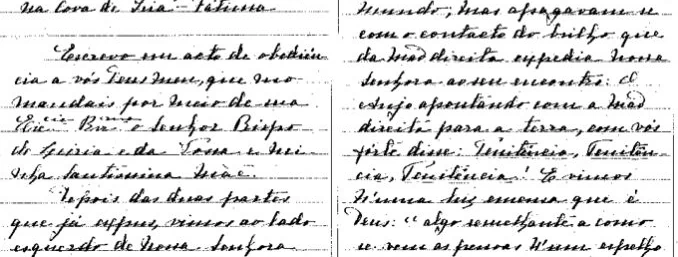 na Cova de Iria – Fátima
Escrevo em acto de obediên-
cia a vós Deus meu, que mo
mandais por meio de sua
Ex.cia Rev.ma o Senhor Bispo
de Leiria e da Vossa e mi-
nha Santissima Mãe.
Depois das duas partes
que já expus, vimos ao lado
esquerdo de Nossa Senhora
mundo; mas apagavam-se
com o contacto do brilho que
da mão direita expedia Nossa
Senhora ao seu encontro: O
Anjo apontando com a mão
direita para a terra, com vós
forte disse: Penitência, Peniten-
cia, Penitência! E vimos
n'uma luz emensa que é
Deus: "algo semelhante a como
se vem as pessoas n'um espelho